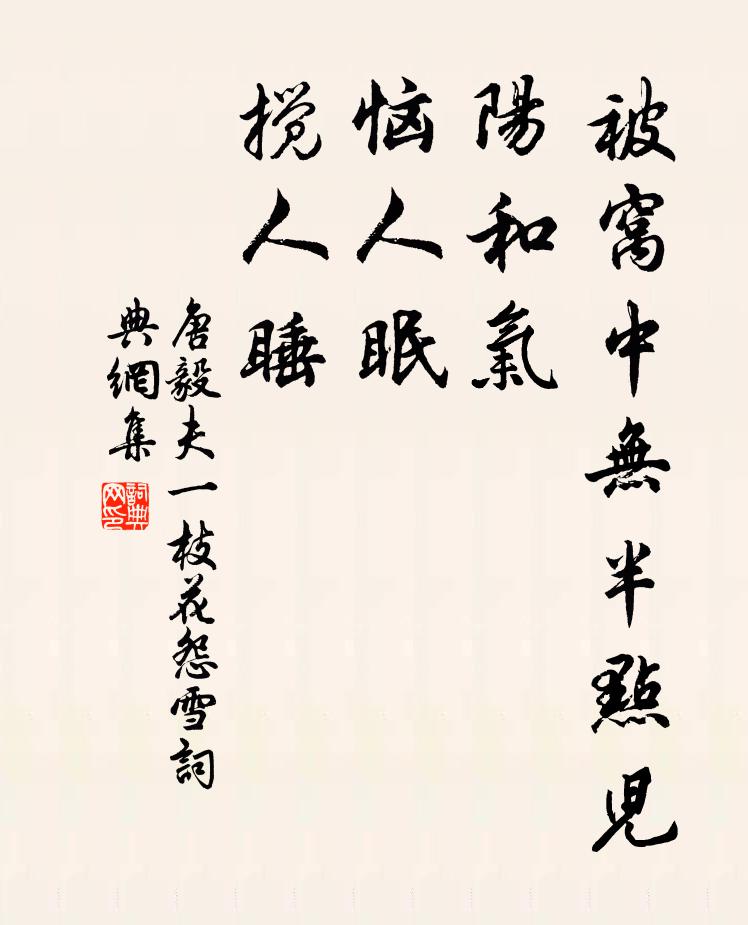 被窝中無半點児
陽和氣
恼人眠
搅人睡
唐毅夫一枝花怨雪詞
典網集
詞典
网印